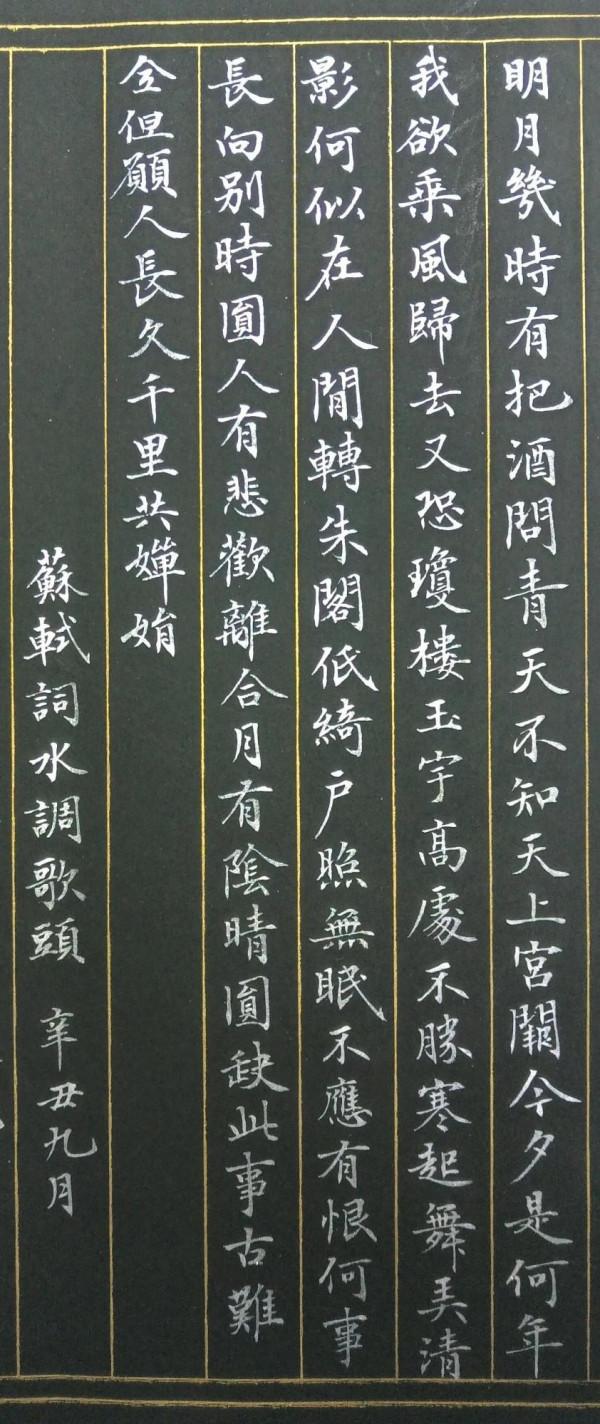 明月幾時有把酒問青天不知天上宮闕今夕是何年
我欲乘風歸去又恐瓊樓玉宇高處不勝寒起舞弄清
影何似在人間轉朱閣低綺户照無眠不應有恨何事
長向别時圓人有悲歡離合月有陰晴圓缺此事古難
全但願人長久千里共嬋娟
蘇軾詞水調歌頭 辛丑九月